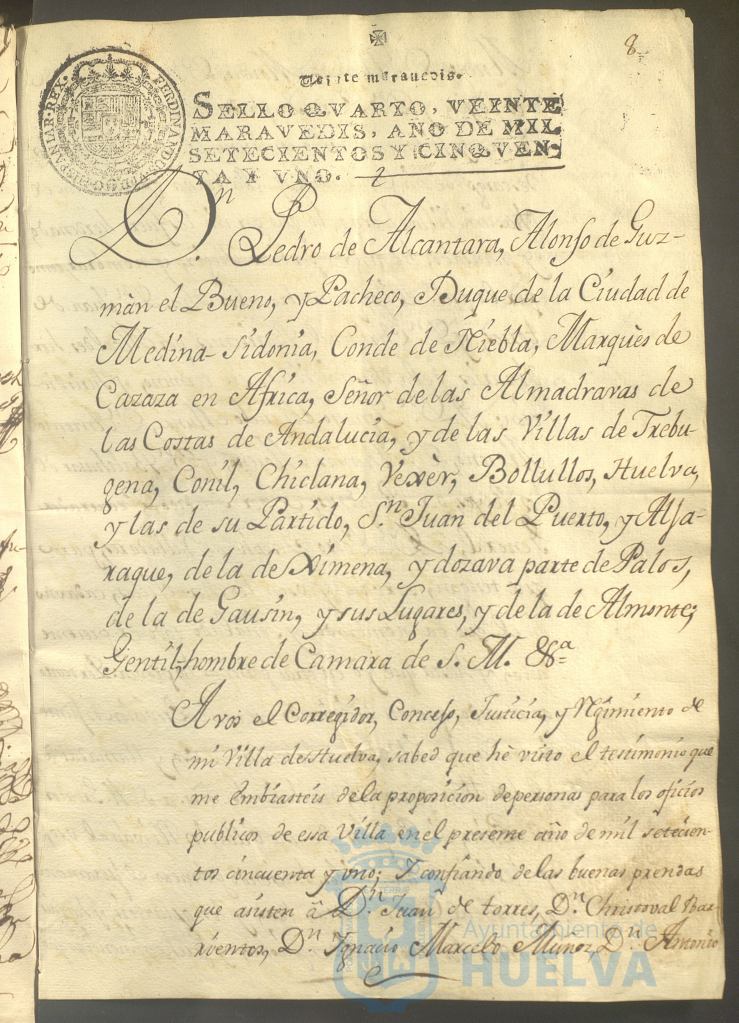 8
Veinte maravedis.
FERDINANDVS VI D G HISPANIAR REX
SELLO QVARTO, VEINTE
MARAVEDIS, AÑO DE MIL
SETECIENTOS Y CINQVEN-
TA Y VNO.
D.n Pedro de Alcantara, Alonso de Guz-
màn el Bueno, y Pacheco, Duque de la Ciudad de
Medina Sidonia, Conde de Niebla, Marquès de
Cazaza en Africa, Señor de las Almadravas de
las Costas de Andalucia, y de las Villas de Trebu
gena, Conil, Chiclana, Vexèr, Bollullos, Huelva,
y las de su Partido, S.n Juan del Puerto, y Alja-
raque, de la de Ximena, y dozava parte de Palos,
de la de Gausin, y sus Lugares, y de la de Almonte;
Gentil-hombre de Camara de S. M. &a
A vos el Corregidor, Concejo, Justicia, y Rgimiento de
mi Villa de Huelva, sabed que hè visto el testimonio que
me embiasteis de la proposicion de personas para los oficios
publicos de essa Villa en el presente año de mil setecien-
tos cincuenta y vno; Y confiando de las buenas prendas
que asisten â D.n Juan de torres, D.n Christoval Bar-
rientos, D.n Ignacio Marcelo Muñoz D.n Antonio
Ayuntamiento de
HUELVA